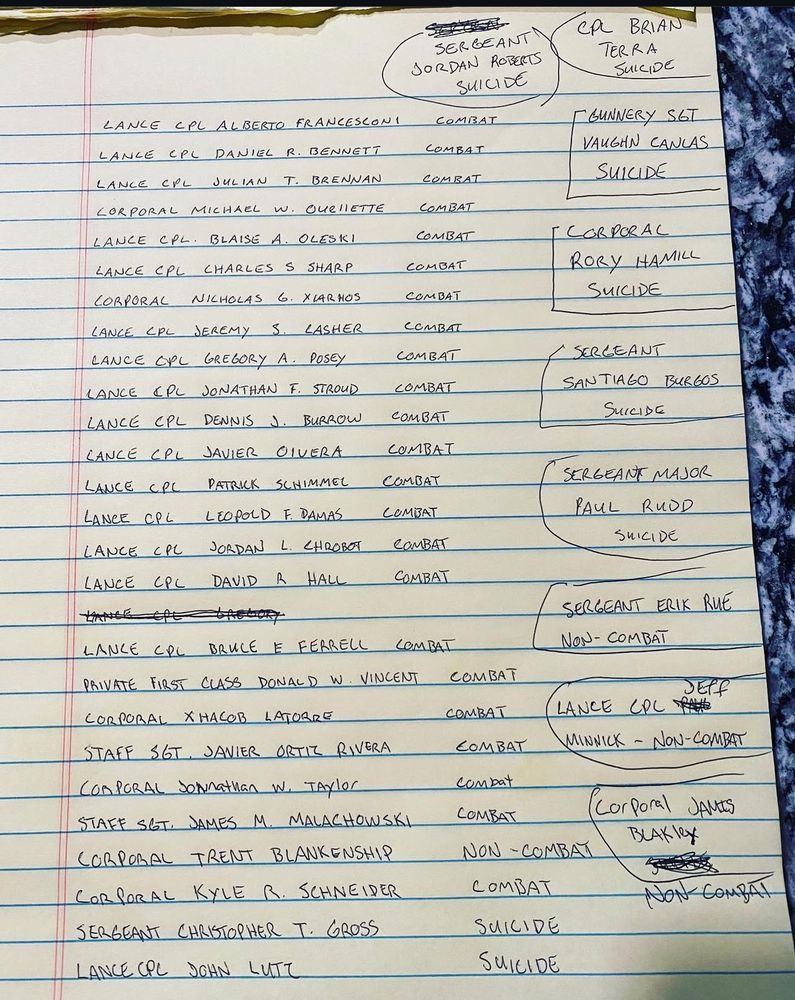 SERGEANT
JORDAN ROBERTS
SUICIDE
CPL BRIAN
TERRA
SUICIDE
LANCE CPL ALBERTO FRANCESCONI COMBAT
LANCE CPL DANIEL R. BENNETT COMBAT
LANCE CPL JULIAN T. BRENNAN COMBAT
CORPORAL MICHAEL W. OUELLETTE COMBAT
LANCE CPL. BLAISE A. OLESKI COMBAT
LANCE CPL CHARLES S SHARP COMBAT
CORPORAL NICHOLAS G. XIARHOS COMBAT
LANCE CPL JEREMY S. LASHER COMBAT
LANCE CPL GREGORY A. POSEY COMBAT
LANCE CPL JONATHAN F. STROUD COMBAT
LANCE CPL DENNIS J. BURROW COMBAT
LANCE CPL JAVIER OLVERA COMBAT
LANCE CPL PATRICK SCHIMMEL COMBAT
LANCE CPL LEOPOLD F. DAMAS COMBAT
LANCE CPL JORDAN L. CHROBOT COMBAT
LANCE CPL DAVID R HALL COMBAT
LANCE CPL GREGORY
LANCE CPL BRUCE E FERRELL COMBAT
PRIVATE FIRST CLASS DONALD W. VINCENT COMBAT
CORPORAL XHACOB LATORRE COMBAT
STAFF SGT. JAVIER ORTIZ RIVERA COMBAT
CORPORAL Johnathan W. Taylor combat
STAFF SGT. JAMES M. MALACHOWSKI COMBAT
CORPORAL TRENT BLANKENSHIP NON-COMBAT
CORPORAL KYLE R. SCHNEIDER COMBAT
SERGEANT CHRISTOPHER T. GROSS SUICIDE
LANCE CPL JOHN LUTZ SUICIDE
GUNNERY SGT
VAUGHN CANLAS
SUICIDE
CORPORAL
RORY HAMILL
SUICIDE
SERGEANT
SANTIAGO BURGOS
SUICIDE
SERGEANT MAJOR
PAUL RUDD
SUICIDE
SERGEANT ERIK RUE
NON-COMBAT
JEFF
LANCE CPL
MINNICK - NON-COMBAT
Corporal JANIS
BLAKLEY
NON-COMBAT